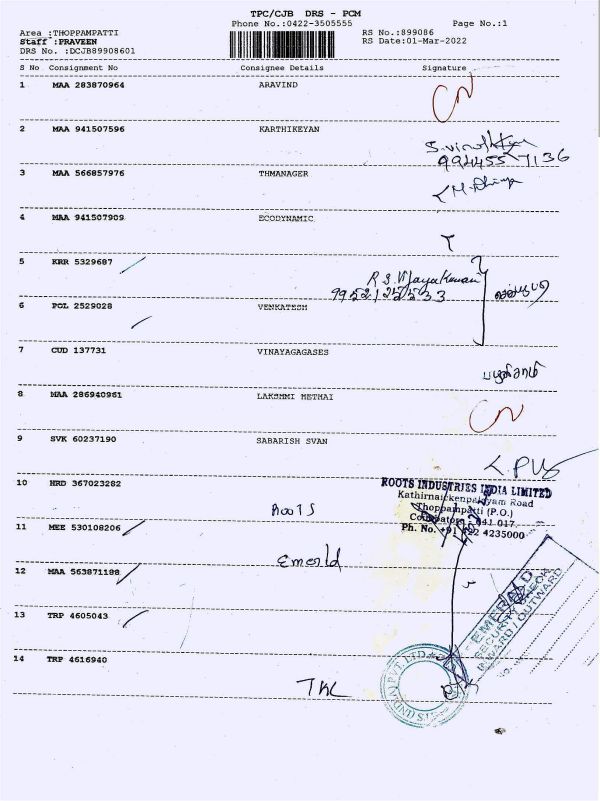 TPC/CJB DRS - PCM
Phone No.:0422-3505555
Page No.:1
Area :THOPPAMPATTI
RS No.:899086
Staff :PRAVEEN
RS Date:01-Mar-2022
DRS No. :DCJB89908601
S No Consignment No Consignee Details Signature
1 MAA 283870964 ARAVIND
CN
2 MAA 941507596 KARTHIKEYAN
3 MAA 566857976 THMANAGER
4 MAA 941507909 ECODYNAMIC
5 KRR 5329687
R S Vijayakumar
6 POL 2529028 VENKATESH
7 CUD 137731 VINAYAGAGASES
8 MAA 286940961 LAKSHMI METHAI
CN
9 SVK 60237190 SABARISH SVAN
10 HRD 367023282
ROOTS INDUSTRIES INDIA LIMITED
Kathirnaickenpalayam Road
Thoppampatti (P.O.)
Coimbatore - 641 017
Ph. No. +91 422 4235000
Roots
11 MEE 530108206
Emerald
12 MAA 563871188
EMERALD
SECURITY CHECK
INWARD / OUTWARD
13 TRP 4605043
14 TRP 4616940
TKL